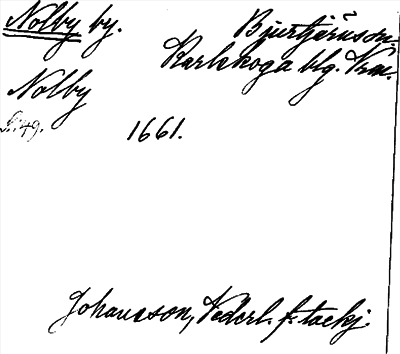 Nolby by. Bjurtjärns sn.
Karlskoga blg. Vrm.
Nolby
s. 49. 1661.
Johansson, Vederl. f. tackj.